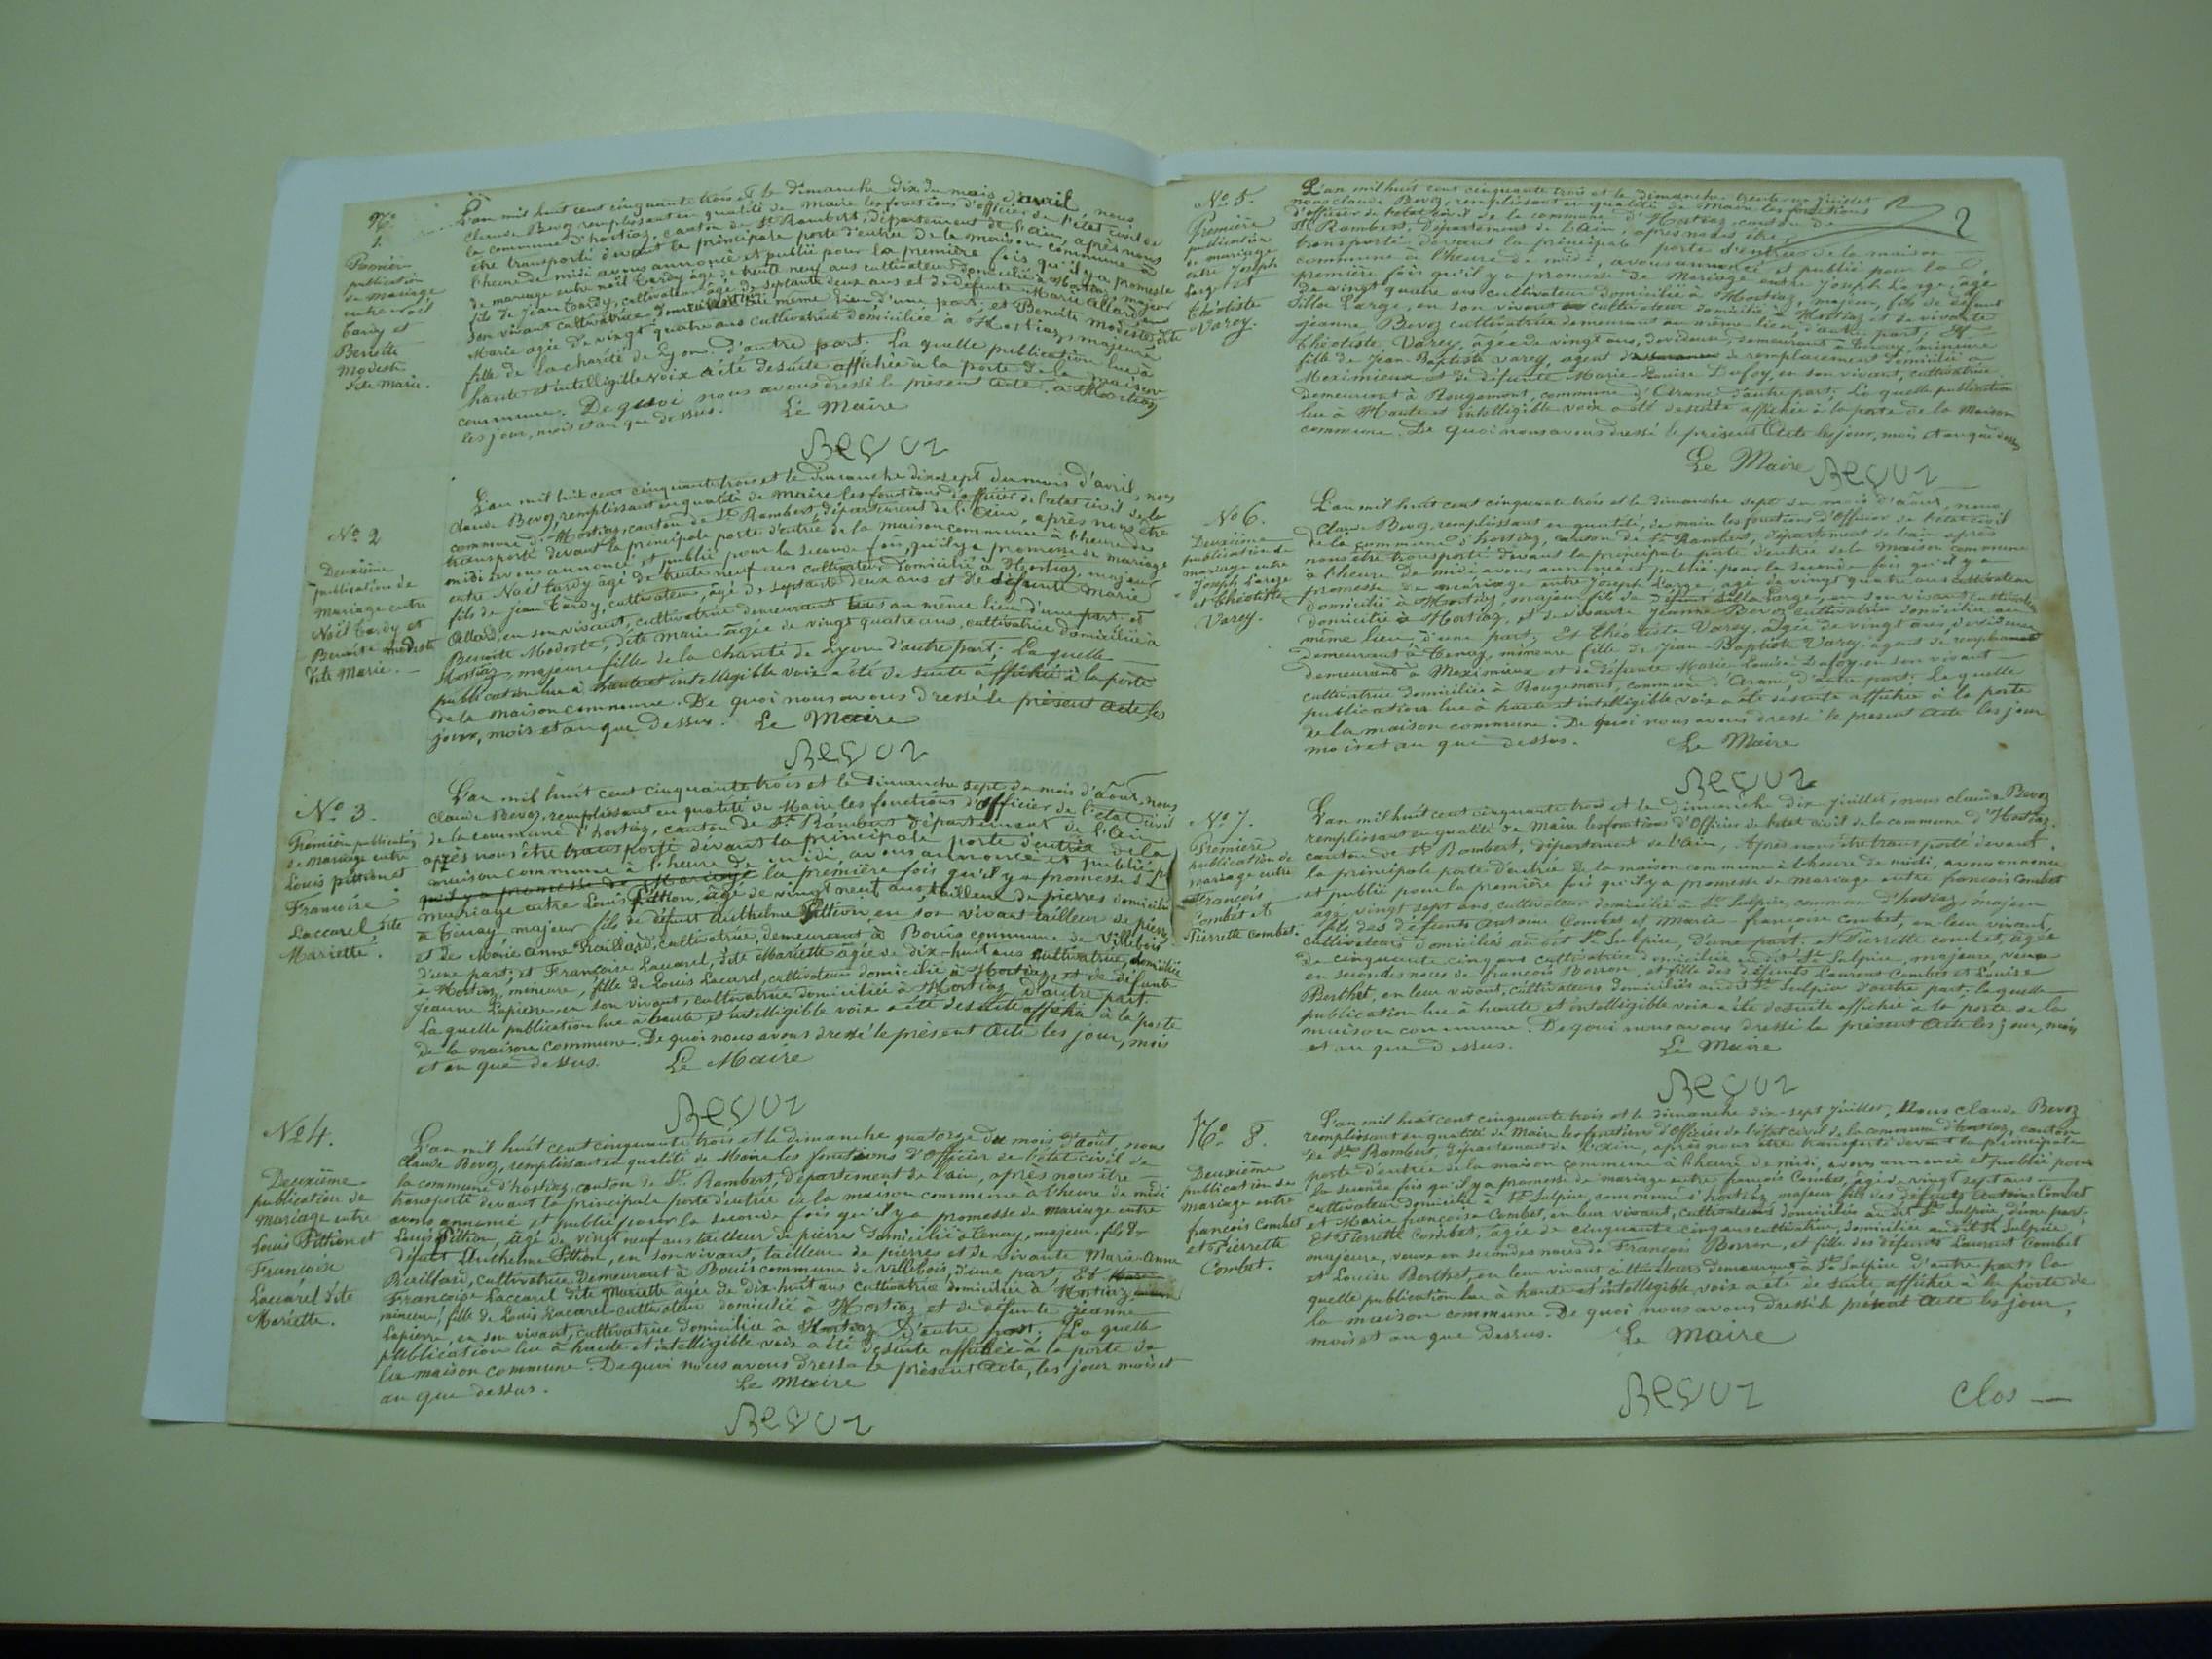 N°
1.
Première
publication
de mariage
entre Noël
Tardy et
Benoite
Modeste
dite Marie.
L'an mil huit cent cinquante trois et le dimanche dix du mois d'avril, nous
Claude Bevoz remplissant en qualité de Maire les fonctions d'officier de l'état civil de
la commune d'hostiaz, canton de St Rambert, département de l'ain, après nous
être transporté devant la principale porte d'entrée de la maison commune à
l'heure de midi avons annoncé et publié pour la première fois qu'il y a promesse
de mariage entre Noël Tardy âgé de trente neuf ans cultivateur domicilié à Hostiaz, majeur
fils de Jean Tardy, cultivateur, âgé de septante deux ans et de défunte Marie Allard, en
son vivant cultivatrice même lieu d'une part, et Benoite Modeste, dite
Marie agée de vingt quatre ans cultivatrice domiciliée à Hostiaz, majeure
fille de la charité de Lyon. d'autre part. La quelle publication lue à
haute et intelligible voix a été de suite affichée à la porte de la maison
commune. De quoi nous avons dressé le présent acte. a Hostiaz
les jour, mois et an que dessus. Le Maire
Bevoz
N° 2
Deuxième
publication de
Mariage entre
Noël Tardy et
Benoite Modeste
dite Marie.
L'an mil huit cent cinquante trois et le Dimanche dix sept du mois d'avril, nous
Claude Bevoz, remplissant en qualité de Maire les fonctions d'officier de l'état civil de la
commune d'Hostiaz, canton de St Rambert, département de l'Ain, après nous être
transporté devant la principale porte d'entrée de la maison commune à l'heure de
midi avons annoncé et publié pour la seconde fois, qu'il y a promesse de mariage
entre Noël tardy âgé de trente neuf ans cultivateur domicilié à Hostiaz, majeur
fils de jean tardy, cultivateur, âgé de septante deux ans et de défunte Marie
Allard, en son vivant, cultivatrice demeurant tous au même lieu d'une part et
Benoite Modeste, dite Marie agée de vingt quatre ans, cultivatrice domiciliée à
Hostiaz, majeure fille de la charité de Lyon d'autre part. La quelle
publication lue à haute et intelligible voix a été de suite affichée à la porte
de la maison commune. De quoi nous avons dressé le présent acte les
jour, mois et an que dessus. Le Maire
Bevoz
N° 3.
Première publication
de mariage entre
Louis pittion et
Francoise
Laccarel dite
Mariette.
L'an mil huit cent cinquante trois et le dimanche sept du mois d'août, nous
Claude Bevoz, remplissant en qualité de Maire les fonctions d'officier de l'état civil
de la commune d'hostiaz, canton de St Rambert département de l'Ain
après nous être transporté devant la principale porte d'entrée de la
maison commune à l'heure de midi, avons annoncé et publié
qu'il y a promesse de Mariage la première fois qu'il y a promesse de
mariage entre Louis Pittion, âgé de vingt neuf ans, tailleur de pierres domicilié
a tenay, majeur fils de défunt Anthelme Pittion en son vivant tailleur de pierres
et de Marie Anne Braillard, cultivatrice, demeurant à Bouis commune de Villebois
d'une part, et Françoise Laccarel, dite Mariette agée de dix-huit ans cultivatrice, domiciliée
à Hostiaz, mineure, fille de Louis Lacarel, cultivateur domicilié à Hostiaz, et de défunte
Jeanne Lapierre en son vivant, cultivatrice domiciliée à Hostiaz d'autre part.
La quelle publication lue à haute et intelligible voix a été de suite affiché à la porte
de la maison commune. De quoi nous avons dressé le présent acte les jour, mois
et an que dessus. Le Maire
Bevoz
N° 4.
Deuxième
publication de
Mariage entre
Louis Pittion et
Françoise
Laccarel dite
Mariette.
L'an mil huit cent cinquante trois et le dimanche quatorze du mois d'août, nous
Claude Bevoz, remplissant en qualité de Maire les fonctions d'Officier de l'état civil de
la commune d'hostiaz, canton de St Rambert, département de l'ain, après nous être
transporté devant la principale porte d'entrée de la maison commune à l'heure de midi
avons annoncé et publié pour la seconde fois qu'il y a promesse de mariage entre
Louis Pittion, âgé de vingt neuf ans tailleur de pierres domicilié a tenay, majeur, fils de
défunt Anthelme Pittion, en son vivant, tailleur de pierres et de vivante Marie-Anne
Braillard, cultivatrice Demeurant à Bouis commune de Villebois, d'une part, Et
Françoise Laccarel dite Mariette agée de dix-huit ans cultivatrice domiciliée à Hostiaz
mineure, fille de Louis Lacarel cultivateur domicilié à Hostiaz et de défunte jeanne
Lapierre, en son vivant, cultivatrice domiciliée à Hostiaz d'autre part. La quelle
publication lue à haute et intelligible voix a été de suite affichée à la porte de
la maison commune. De quoi nous avons dressé le présent acte, les jour mois et
an que dessus. Le Maire
Bevoz
N° 5.
Première
publication
de mariage
entre Joseph
Large et
Théotiste
Varey.
L'an mil huit cent cinquante trois et le dimanche trente un juillet
nous claude Bevoz, remplissant en qualité de Maire les fonctions
d'officier de l'état civil de la commune d'Hostiaz, canton de
St Rambert, Département de l'Ain, après nous être
transporté devant la principale porte d'entrée de la maison
commune à l'heure de midi, avons annoncé et publié pour la
première fois qu'il y a promesse de Mariage entre Joseph Large, âgé
de vingt quatre ans cultivateur domicilié à Hostiaz, majeur, fils de défunt
Large, en son vivant cultivateur domicilié à Hostiaz et de vivante
jeanne Bevoz cultivatrice demeurant au même lieu, d'autre part, Et
théotiste Varey, âgée de vingt ans, devideuse, demeurant à tenay mineure
fille de Jean Baptiste varey, agent de remplacement domicilié à
Meximieux et de défunte Marie Louise Dufoy, en son vivant, cultivatrice
demeurant à Rougemont, commune d'Arane d'autre part, La quelle publication
lue à Haute et intelligible voix a été de suite affichée à la porte de la Maison
commune. De quoi nous avons dressé le présent Acte les jour, mois et an que dessus
Le Maire Bevoz
N° 6.
Deuxième
publication de
mariage entre
Joseph Large
et théotiste
Varey.
L'an mil huit cent cinquante trois et le dimanche sept du mois d'août, nous
Claude Bevoz, remplissant en qualité, de maire les fonctions d'Officier de l'état civil
de la commune d'hostiaz, canton de St Rambert, département de l'ain après
nous être transporté devant la principale porte d'entrée de la Maison commune
à l'heure de midi avons annoncé et publié pour la seconde fois qu'il y a
promesse de mariage entre Joseph Large, âgé de vingt quatre ans cultivateur
domicilié à Hostiaz, majeur fils de défunt Large, en son vivant cultivateur
domicilié à Hostiaz, et de vivante Jeanne Bevoz cultivatrice domiciliée au
même lieu, d'une part, Et théotiste Varey, âgée de vingt ans, devideuse
demeurant à tenay, mineure fille de Jean-Baptiste Varey, agent de remplacement
demeurant à Meximieux et de défunte Marie Louise Dufoy en son vivant
cultivatrice domiciliée à Rougemont, commune d'Arane d'autre part. La quelle
publication lue à haute et intelligible voix a été de suite affichée à la porte
de la maison commune. De quoi nous avons dressé le présent acte les jour
mois et an que dessus. Le Maire
Bevoz
N° 7.
Première
publication de
mariage entre
François
Combet et
Pierrette combet.
L'an mil huit cent cinquante trois et le dimanche dix juillet, nous claude Bevoz
remplissant en qualité de Maire les fonctions d'Officier de l'état civil de la commune d'Hostiaz
canton de St Rambert, département de l'Ain, Après nous être transporté devant
la principale porte d'entrée de la maison commune à l'heure de midi, avons annoncé
et publié pour la première fois qu'il y a promesse de mariage entre françois Combet
agé vingt sept ans, cultivateur domicilié à St Sulpice, commune d'hostiaz, majeur
fils des défunts Antoine Combet et Marie-françoise combet, en leur vivant,
cultivateurs domiciliés audit St Sulpice, d'une part. et Pierrette combet, âgée
de cinquante cinq ans cultivatrice domiciliée audit St Sulpice, majeure, veuve
en secondes noces de François Borron, et fille des défunts Laurent Combet et Louise
Berthet, en leur vivant, cultivateurs domiciliés audit St Sulpice d'autre part, la quelle
publication lue à haute et intelligible voix a été de suite affichée à la porte de la
maison commune. De quoi nous avons dressé le présent Acte les jour, mois
et an que dessus. Le Maire
Bevoz
N° 8.
Deuxième
publication de
mariage entre
françois Combet
et Pierrette
Combet.
L'an mil huit cent cinquante trois et le dimanche dix-sept juillet, Nous claude Bevoz
remplissant en qualité de Maire les fonctions d'Officier de l'état civil de la commune d'hostiaz, canton
de St Rambert, Département de l'Ain, après nous être transporté devant la principale
porte d'entrée de la maison commune à l'heure de midi, avons annoncé et publié pour
la seconde fois qu'il y a promesse de mariage entre françois Combet, âgé de vingt sept ans
cultivateur domicilié à St Sulpice, commune d'hostiaz majeur fils des défunts Antoine Combet
et Marie françoise Combet, en leur vivant, cultivateurs domiciliés audit St Sulpice d'une part.
Et Pierrette Combet, âgée de cinquante cinq ans cultivatrice, domiciliée audit St Sulpice,
majeure, veuve en secondes noces de François Borron, et fille des défunts Laurent Combet
et Louise Berthet, en leur vivant cultivateurs demeurant à St Sulpice d'autre part, la
quelle publication lue à haute et intelligible voix a été de suite affichée à la porte de
la maison commune. De quoi nous avons dressé le présent acte les jour,
mois et an que dessus. Le Maire
Bevoz
Clos